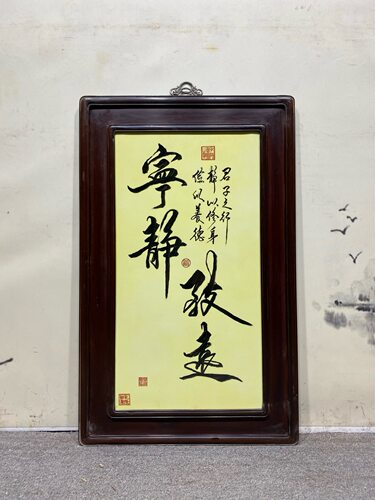 寧靜
致遠
君子之行
靜以修身
儉以養德